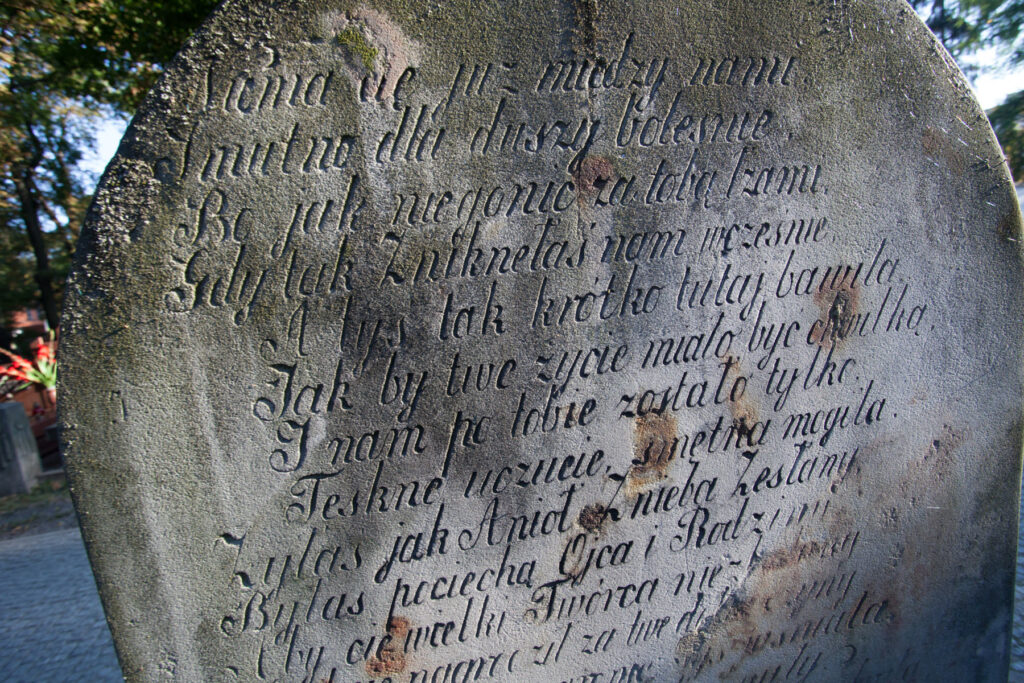 Niema cię już między nami,
Smutno dla duszy boleśnie,
Bo jak niegonić za tobą łzami,
Gdy tak Zniknełaś nam wcześnie.
A tyś tak krótko tutaj bawiła,
Jak by twe życie miało być chwilką,
I nam po tobie zostało tylko,
Teskne uczucie, smętna mogiła.
Żyłaś jak Anioł Znieba Zesłany,
Byłaś pociechą Ojca i Rodziny
Aby cię wielki Twórca nie-
za twe